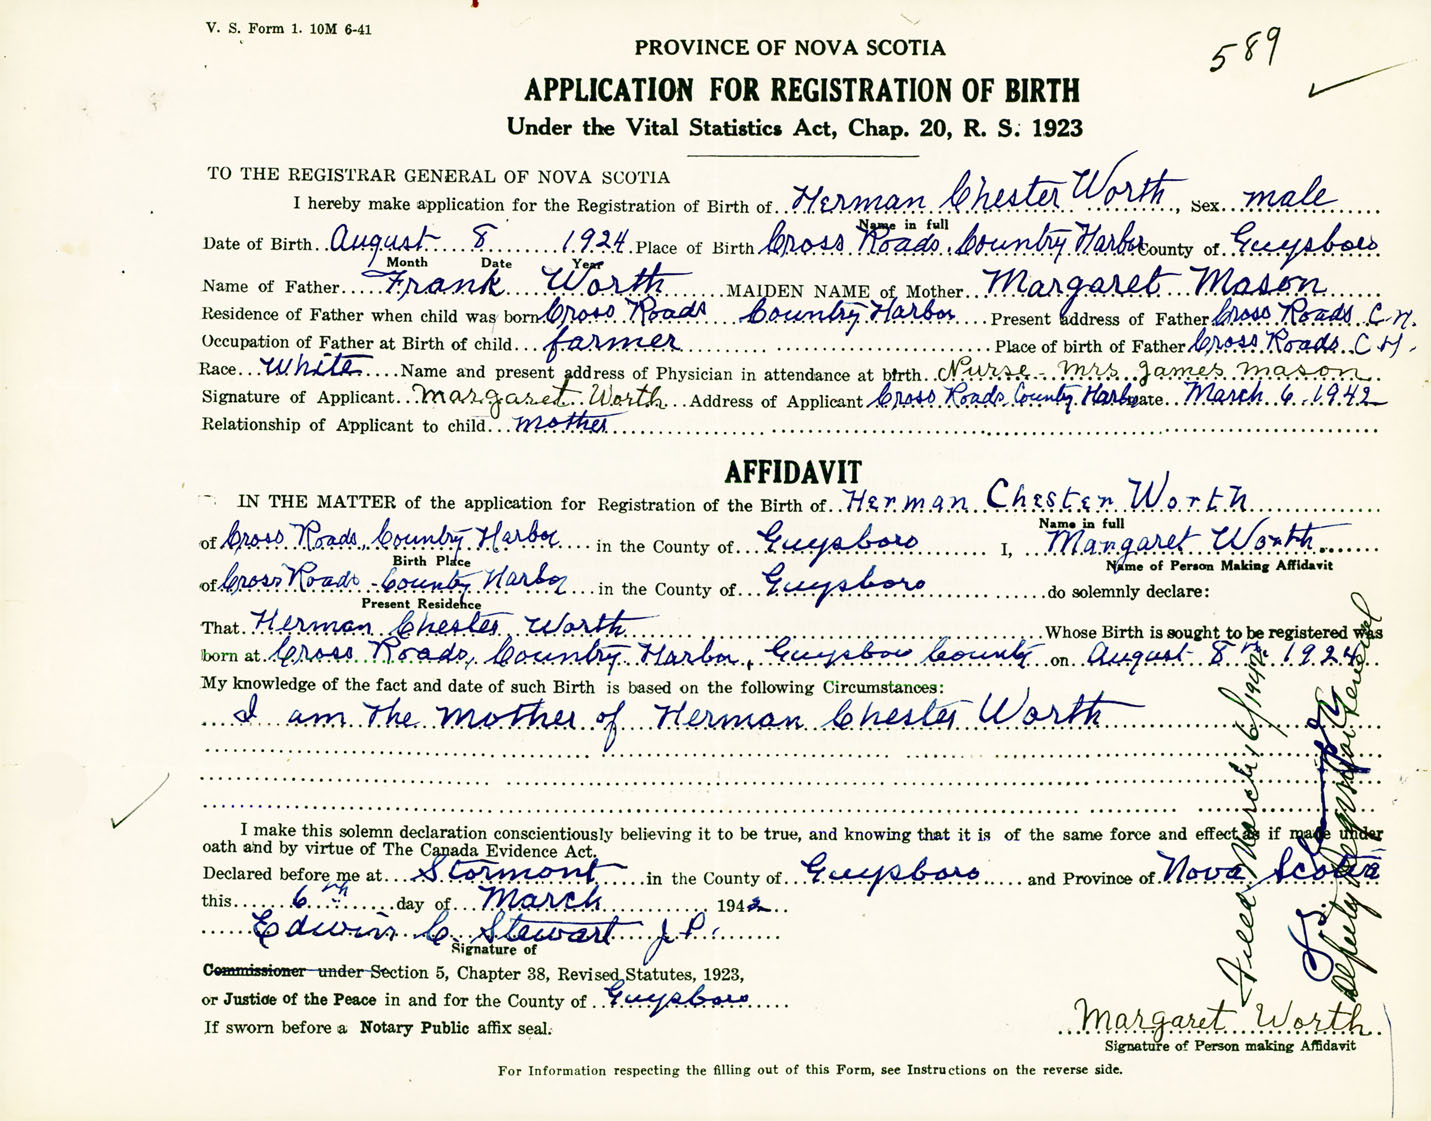 V. S. Form 1. 10M 6-41
589
PROVINCE OF NOVA SCOTIA
APPLICATION FOR REGISTRATION OF BIRTH
Under the Vital Statistics Act, Chap. 20, R. S. 1923
TO THE REGISTRAR GENERAL OF NOVA SCOTIA
I hereby make application for the Registration of Birth of Herman Chester Worth, Sex male
Name in full
Date of Birth August 8 1924 Place of Birth Cross Roads, Country Harbor County of Guysboro
Month Date Year
Name of Father Frank Worth MAIDEN NAME of Mother Margaret Mason
Residence of Father when child was born Cross Roads Country Harbor Present address of Father Cross Roads C H.
Occupation of Father at Birth of child farmer Place of birth of Father Cross Roads C H.
Race White Name and present address of Physician in attendance at birth Nurse - Mrs James Mason
Signature of Applicant Margaret Worth Address of Applicant Cross Roads County Harbor Date March 6 1942
Relationship of Applicant to child mother
AFFIDAVIT
IN THE MATTER of the application for Registration of the Birth of Herman Chester Worth
Name in full
of Cross Roads, Country Harbor in the County of Guysboro I, Margaret Worth
Birth Place Name of Person Making Affidavit
of Cross Roads - County Harbor in the County of Guysboro do solemnly declare:
Present Residence
That Herman Chester Worth Whose Birth is sought to be registered was
born at Cross Roads, Country Harbor, Guysboro County on August 8th 1924
My knowledge of the fact and date of such Birth is based on the following Circumstances:
I am the mother of Herman Chester Worth
I make this solemn declaration conscientiously believing it to be true, and knowing that it is of the same force and effect as if made under
oath and by virtue of The Canada Evidence Act.
Declared before me at Stormont in the County of Guysboro and Province of Nova Scotia
this 6th day of March 1942
Edwin C Stewart J.P.
Signature of
Commissioner under Section 5, Chapter 38, Revised Statutes, 1923,
or Justice of the Peace in and for the County of Guysboro
If sworn before a Notary Public affix seal.
Margaret Worth
Signature of Person making Affidavit
For Information respecting the filling out of this Form, see Instructions on the reverse side.
Filed March 16/1942
Deputy Registrar General